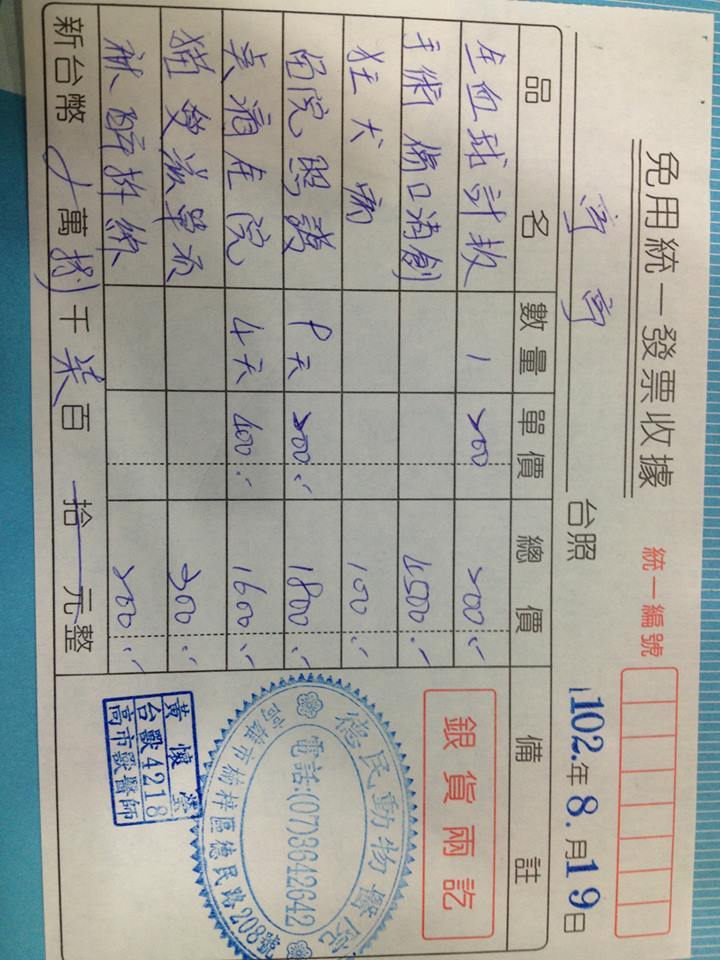 免用統一發票收據
統一編號
台照 102.年 8.月 19日
品名 數量 單價 總價 備註
血球計数 1 200 200.-
手術傷口清創 4500.-
狂犬病 100.-
留院照護 9天 200.- 1800.-
住院 4天 400.- 1600.-
貓愛滋 300.-
200.-
新台幣 萬捌千柒百拾元整
銀貨兩訖
德民動物醫院
電話:(07)3642642
高雄市楠梓區德民路208號
黃懷
台獸4218
高市獸醫師